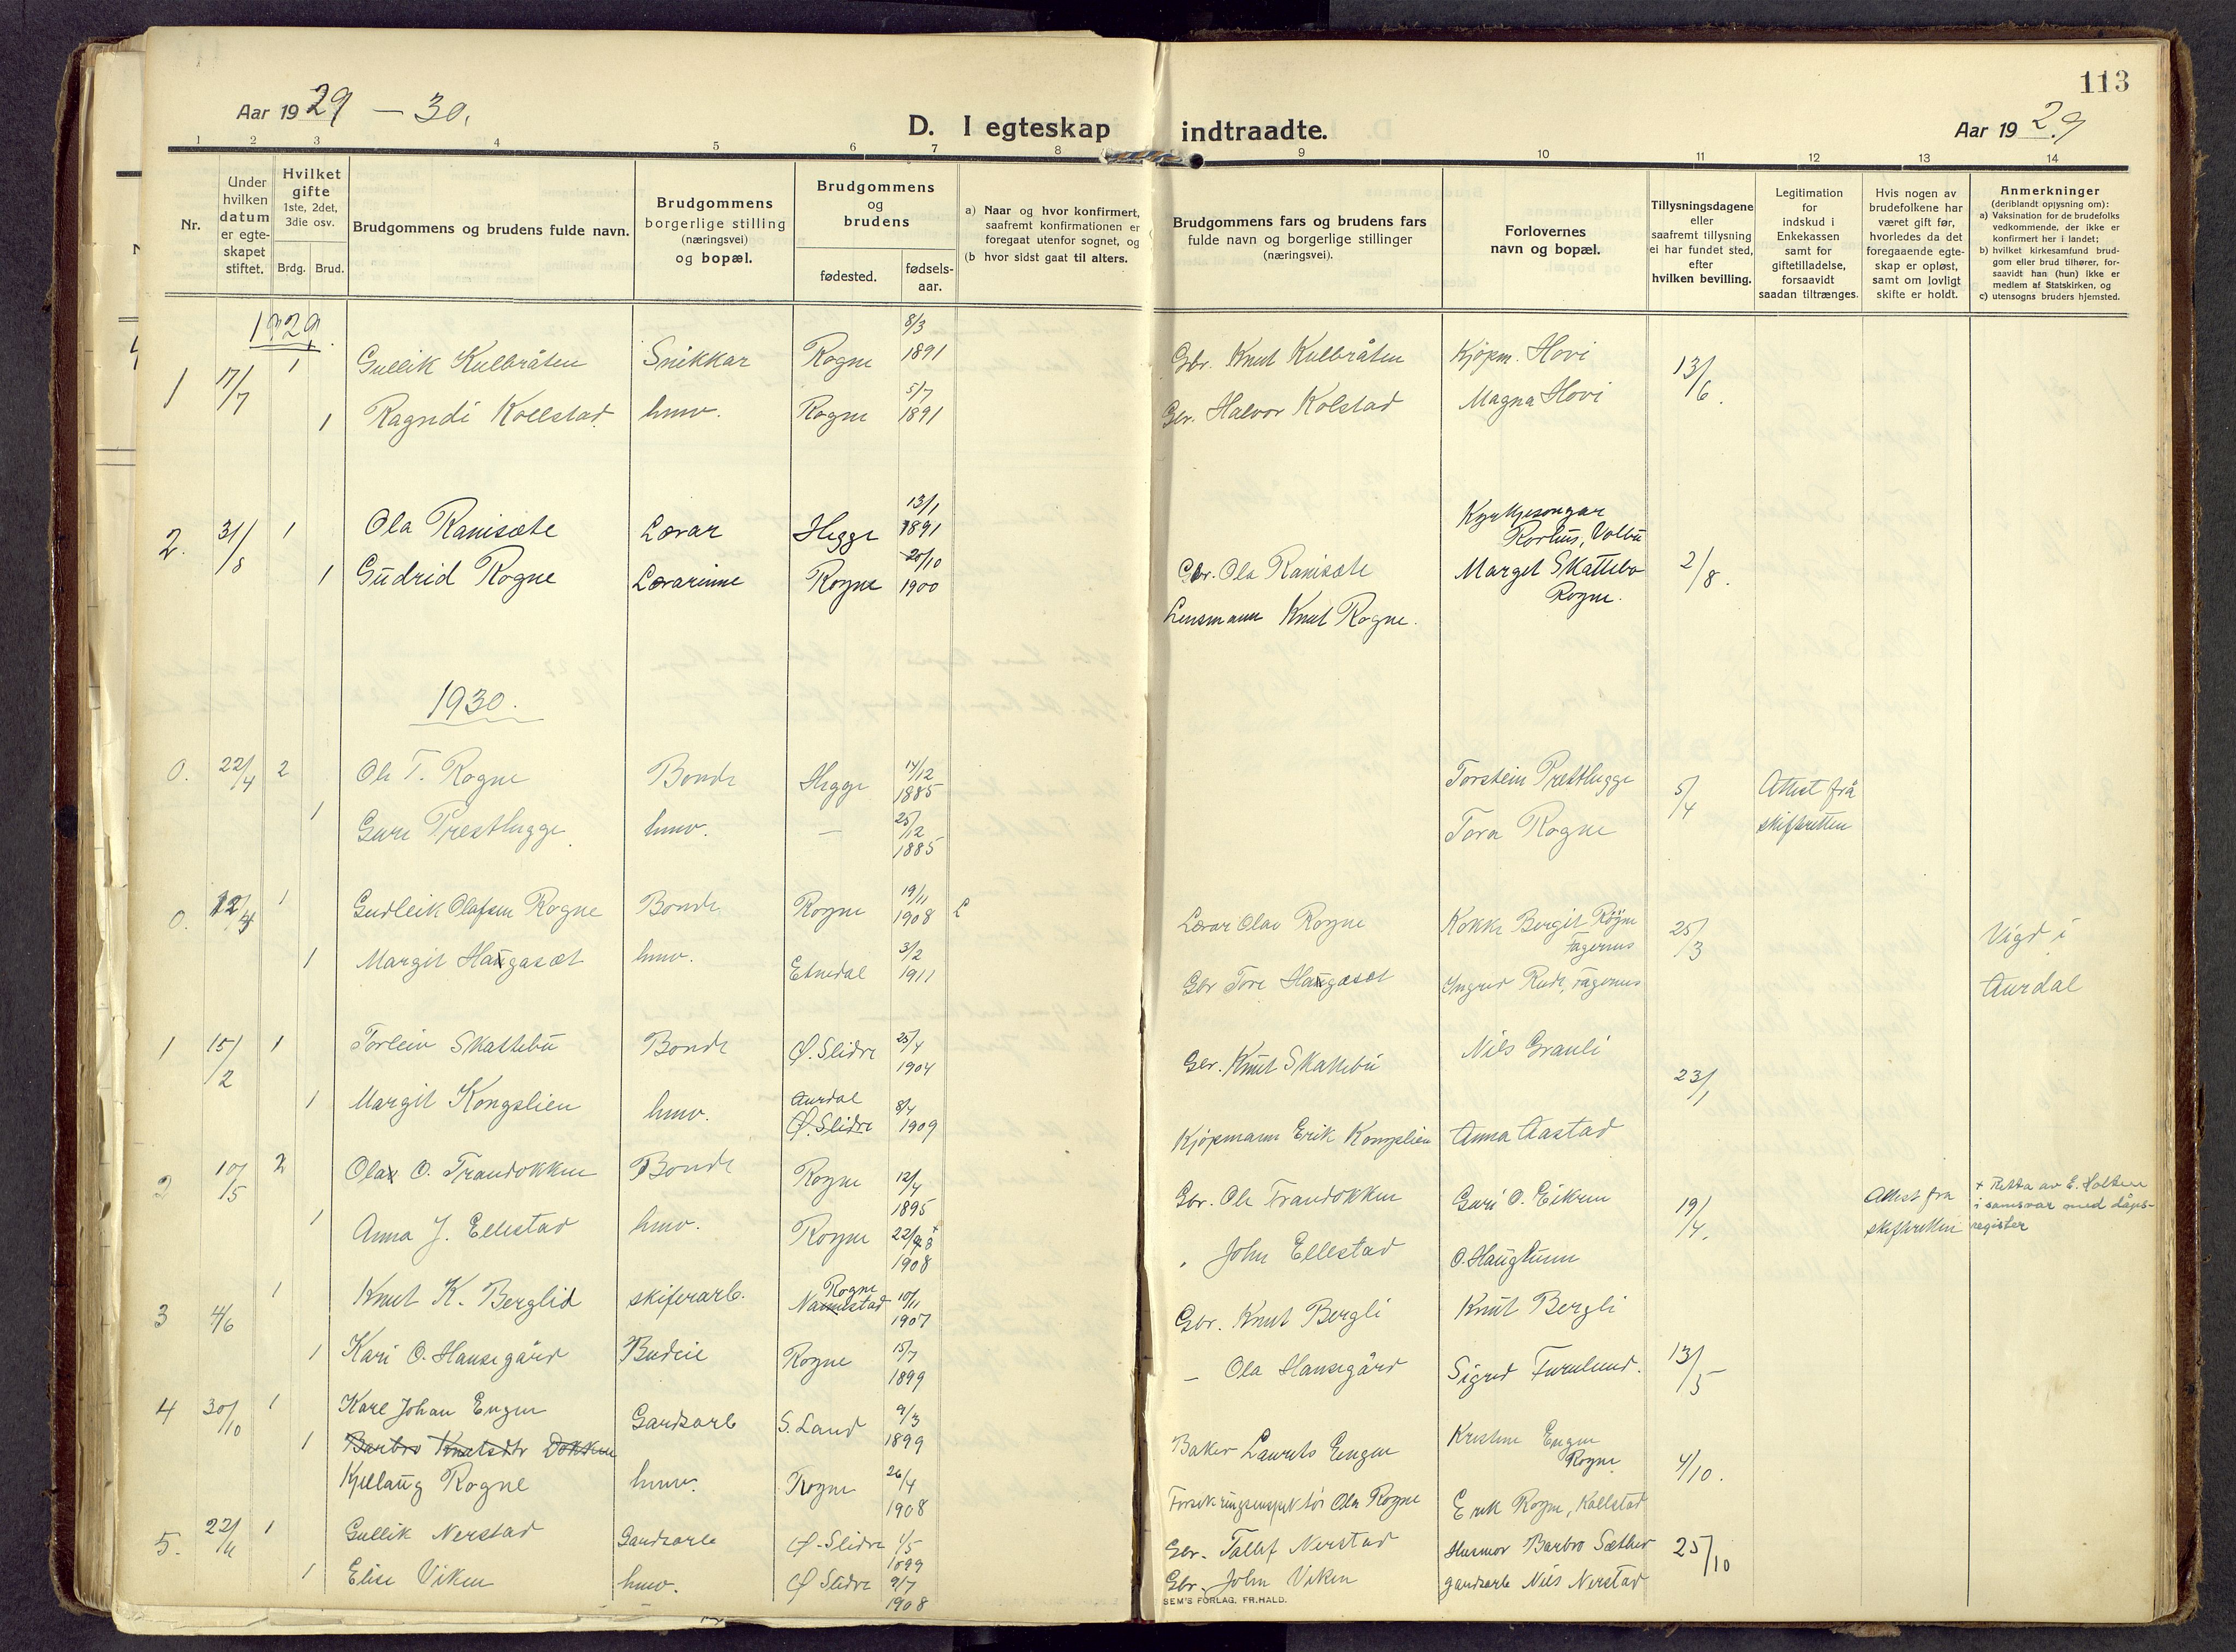 113
Aar 1929 — 30.
D. I egteskap indtraadte.
Aar 1929
1 2 3 4 5 6 7 8 9 10 11 12 13 14
Nr.
Under hvilken datum er egteskapet stiftet.
Hvilket gifte 1ste, 2det, 3die osv.
Brdg. Brud.
Brudgommens og brudens fulde navn.
Brudgommens borgerlige stilling (næringsvei) og bopæl.
Brudgommens og brudens
fødested. fødselsaar.
a) Naar og hvor konfirmert, saafremt konfirmationen er foregaat utenfor sognet, og
(b hvor sidst gaat til alters.
Brudgommens fars og brudens fars fulde navn og borgerlige stillinger (næringsvei).
Forlovernes navn og bopæl.
Tillysningsdagene eller saafremt tillysning ei har fundet sted, efter hvilken bevilling.
Legitimation for indskud i Enkekassen samt for giftetilladelse, forsaavidt saadan tiltrænges.
Hvis nogen av brudefolkene har været gift før, hvorledes da det foregaaende egteskap er opløst, samt om lovligt skifte er holdt.
Anmerkninger (deriblandt opjysning om):
a) Vaksination for de brudefolks vedkommende, der ikke er konfirmert her i landet;
b) hvilket kirkesamfund brudgom eller brud tilhører, forsaavidt han (hun) ikke er medlem af Statskirken, og
c) utensogns bruders hjemsted.
1929
1 17/7 1 Gullik Kulbråten Snikkar Rogne 8/3 1891 Gbr. Knut Kulbråten Kjøpm. Hovi 13/6.
1 Ragndi Kollstad hmv. Rogne 5/7 1891 Gbr. Halvor Kolstad Magna Hovi
2. 31/8 1 Ola Ranisæte Lærar Hegge 13/1 1891 Gbr. Ola Ranisæte Kyrkjesongar Rorhus, Volbu 2/8.
1 Gudrid Rogne Lærarinne Rogne 20/10 1900 Lensmann Knut Rogne. Margit Skattebo Rogne.
1930.
0. 22/4 2 Ole T. Rogne Bonde Hegge 14/12 1885 Torstein Presthegge 5/4 Attest frå skifteretten
1 Guri Presthegge hmv. — 25/12 1885 Tora Rogne
0. 12/4 1 Gudleik Olafsen Rogne Bonde Rogne 19/11 1908 Lærar Olav Rogne Kokke Bergit Røyne Fagernes 25/3 Vigd i
1 Margit Haugasæt hmv. Etnedal 3/2 1911 Gbr Tore Haugasæt Ingrid Rude, Fagernes Aurdal
1 15/2 1 Torleiv Skattebu Bonde Ø. Slidre 25/4 1904 Gbr. Knut Skattebu Nils Granli 23/1
1 Margit Kongslien hmv. Aurdal Ø. Slidre 8/4 1909 Kjøpmann Erik Kongslien Anna Aastad
2 10/5 2 Ola O. Trandokken Bonde Rogne 12/4 1895 Gbr. Ole Trandokken Guri O. Eiken 19/4. Attest fra skifteretten + Retta av E. Holten i samsvar med dåpsregister
1 Anna J. Ellestad hmv. Rogne 22/8+ 1908 John Ellestad O. Haugtunn
3 4/6 1 Knut K. Berglid skiferarb. Rogne Namnstad 10/11 1907 Gbr. Knut Bergli Knut Bergli 13/5
1 Kari O. Hansegård Budeie Rogne 15/7 1899 — Ola Hansegård Sigrid Furulund.
4 30/10 1 Karl Johan Engen Gardsarb S. Land 9/3 1899 Baker Laurits Engen Kristine Engen Rogne 4/10.
1 Barbro Knutsdtr Dokken
Kjellaug Rogne hmv. Rogne 26/4 1908 Forsikringsinspektör Ola Rogne Erik Rogne, Kollstad
5. 22/11 1 Gullik Nerstad Gardsarb Ø. Slidre 1/5 1899 Gbr. Tollef Nerstad Husmor Barbro Sæther 25/10
1 Elise Viken hmv. Ø Slidre 9/7 1908 Gbr. John Viken gardsarb Nils Nerstad
SEM'S FORLAG, FR.HALD.